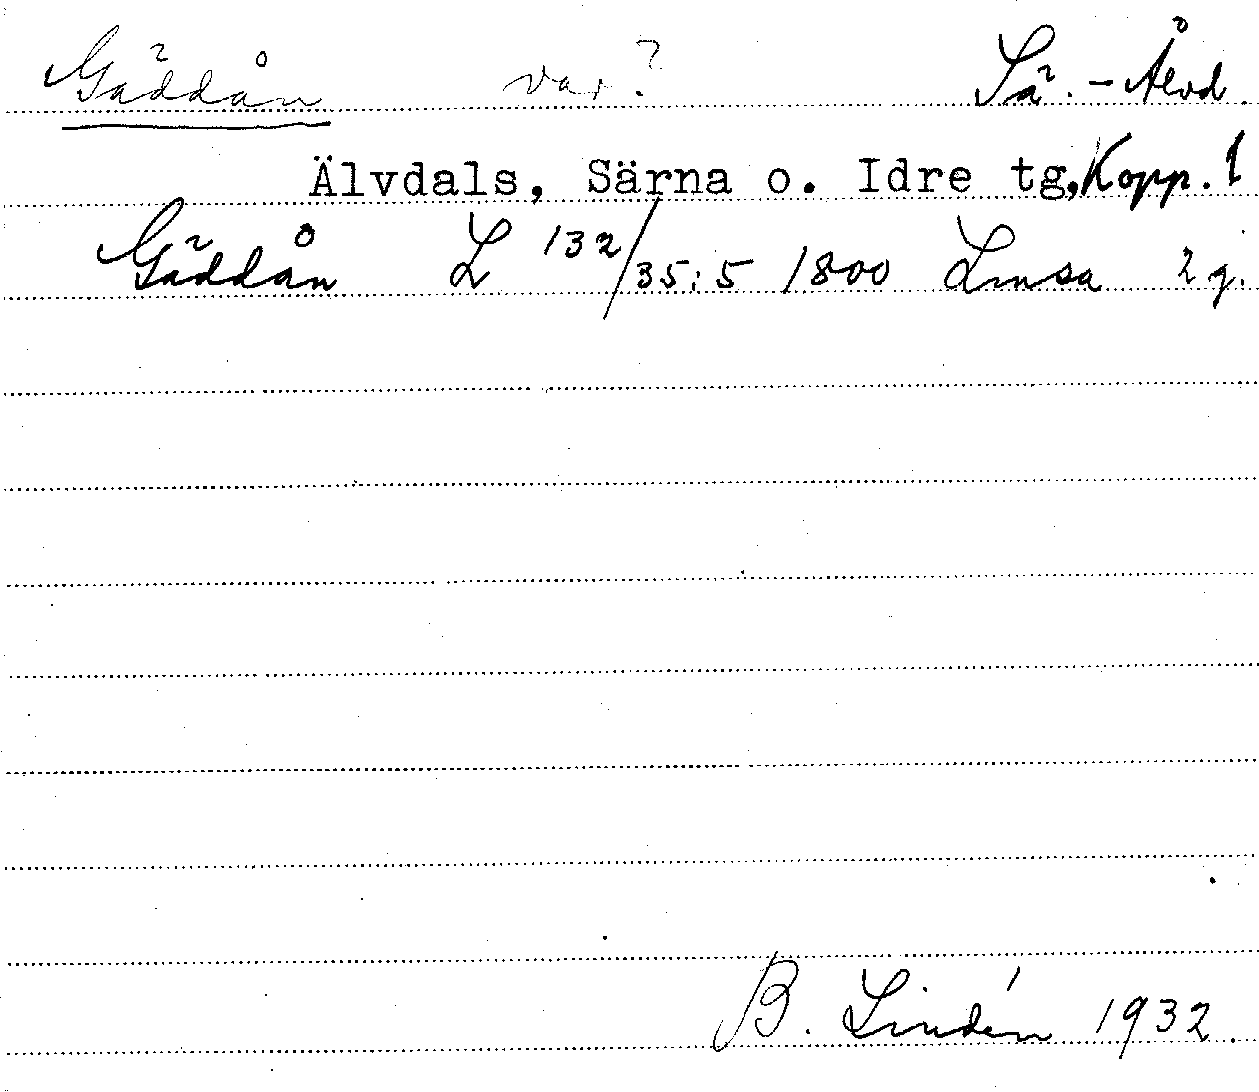 Gäddån var? Sä. - Älvd.
Älvdals, Särna o. Idre tg, Kopp. l
Gäddån L 132/35:5 1800 Limsa 2 g.
B. Lindén 1932.